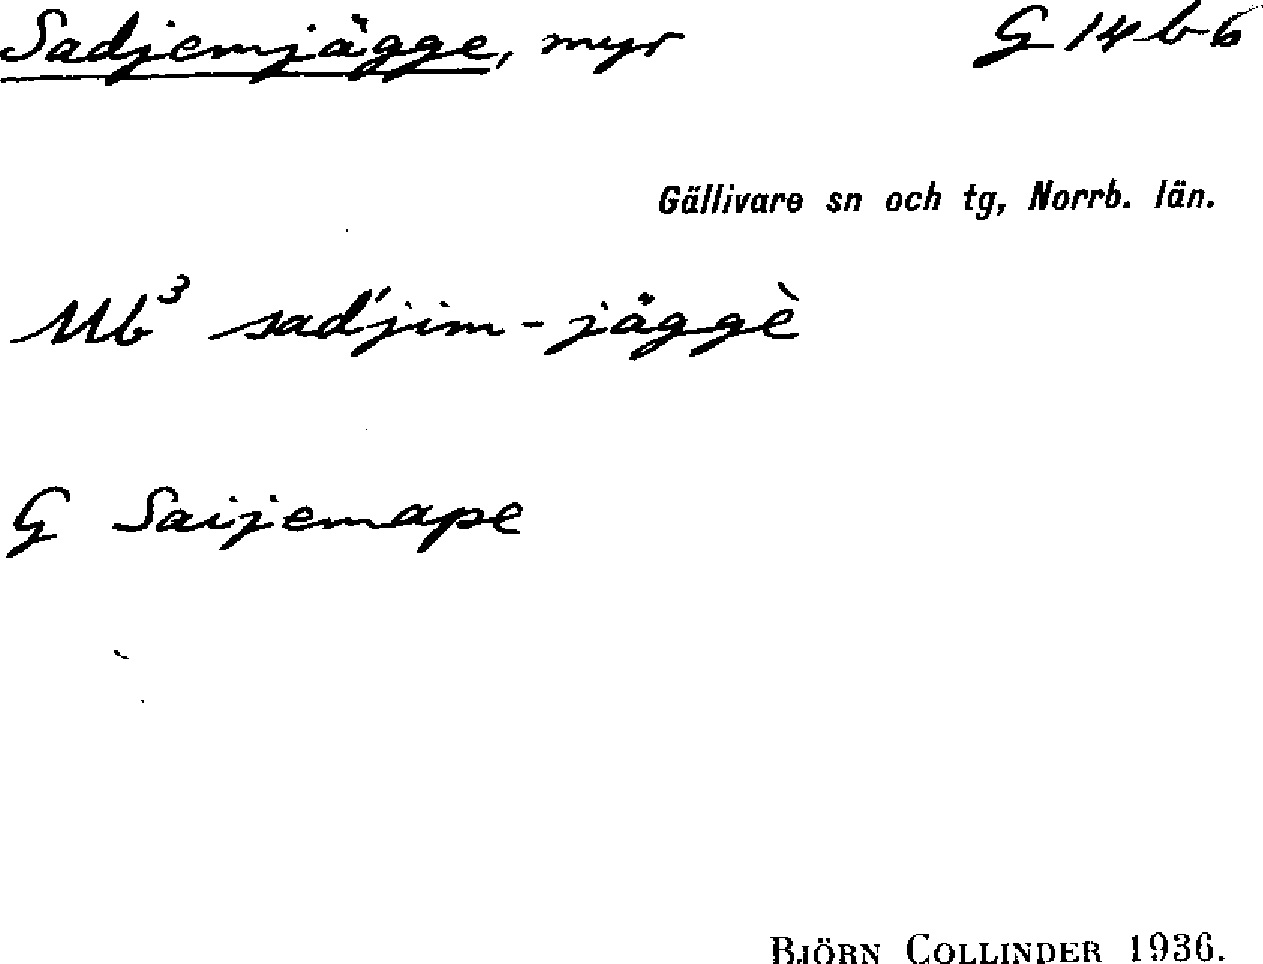 Sadjemjägge, myr G 14 b 6
Gällivare sn och tg, Norrb. län.
Ub³ sad'jim-jäggè
G Saijemape
BJÖRN COLLINDER 1936.